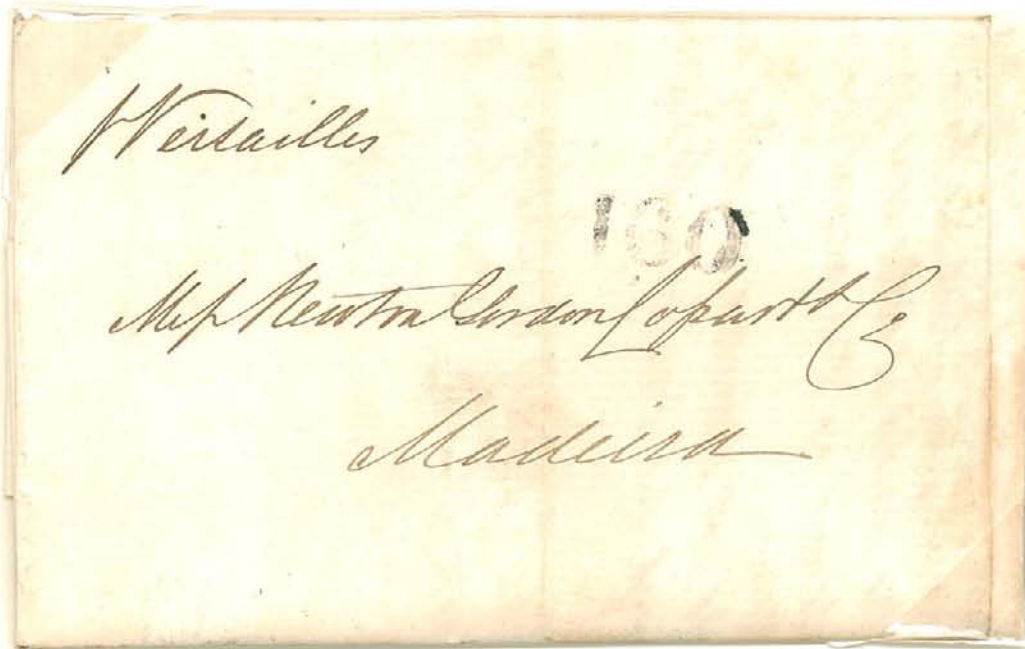 p Versailles
160
Mess Newton Gordon Cossart & Co
Madeira